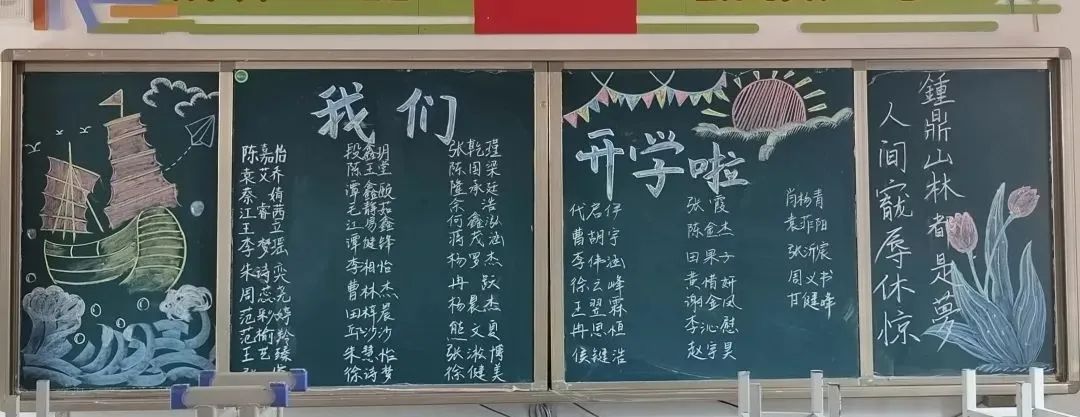 我们
开学啦
陈嘉怡
袁艾乔
江睿茜
王立
李梦瑶
朱诗奕
周蕊
范
范榆
王艺臻
段鑫玥
陈玉莹
谭鑫颐
毛静茹
江易鑫
谭健锋
李湘怡
曹林杰
田梓晨
岳沙沙
朱慧怡
徐诗梦
张乾瑆
陈国梁
隆承廷
何鑫泓
蒋茂涵
杨罗杰
冉跃
杨晨杰
熊文夏
张淑博
徐健美
代君伊
曹胡宇
李伟涵
徐云峰
王翌霖
冉思恒
侯键浩
张霞
陈金杰
田果子
黄惜妍
谢金凤
李沁慰
赵宇昊
肖杨青
袁菲阳
张沂宸
周义书
甘健峰
鍾鼎山林都是夢
人间寵辱休惊